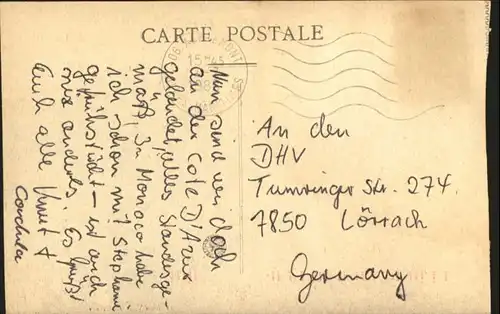 CARTE POSTALE
Nun sind wir doch
an der Cote D'Azur
gelandet, alles Standesge-
mäß, in Monaco habe
ich schon mit Stephanie
gefrühstückt – ist auch
nix anderes. Es grüßt
Euch alle Knut +
Cordula
An den
DHV
Tumringer Str. 274
7850 Lörrach
Germany